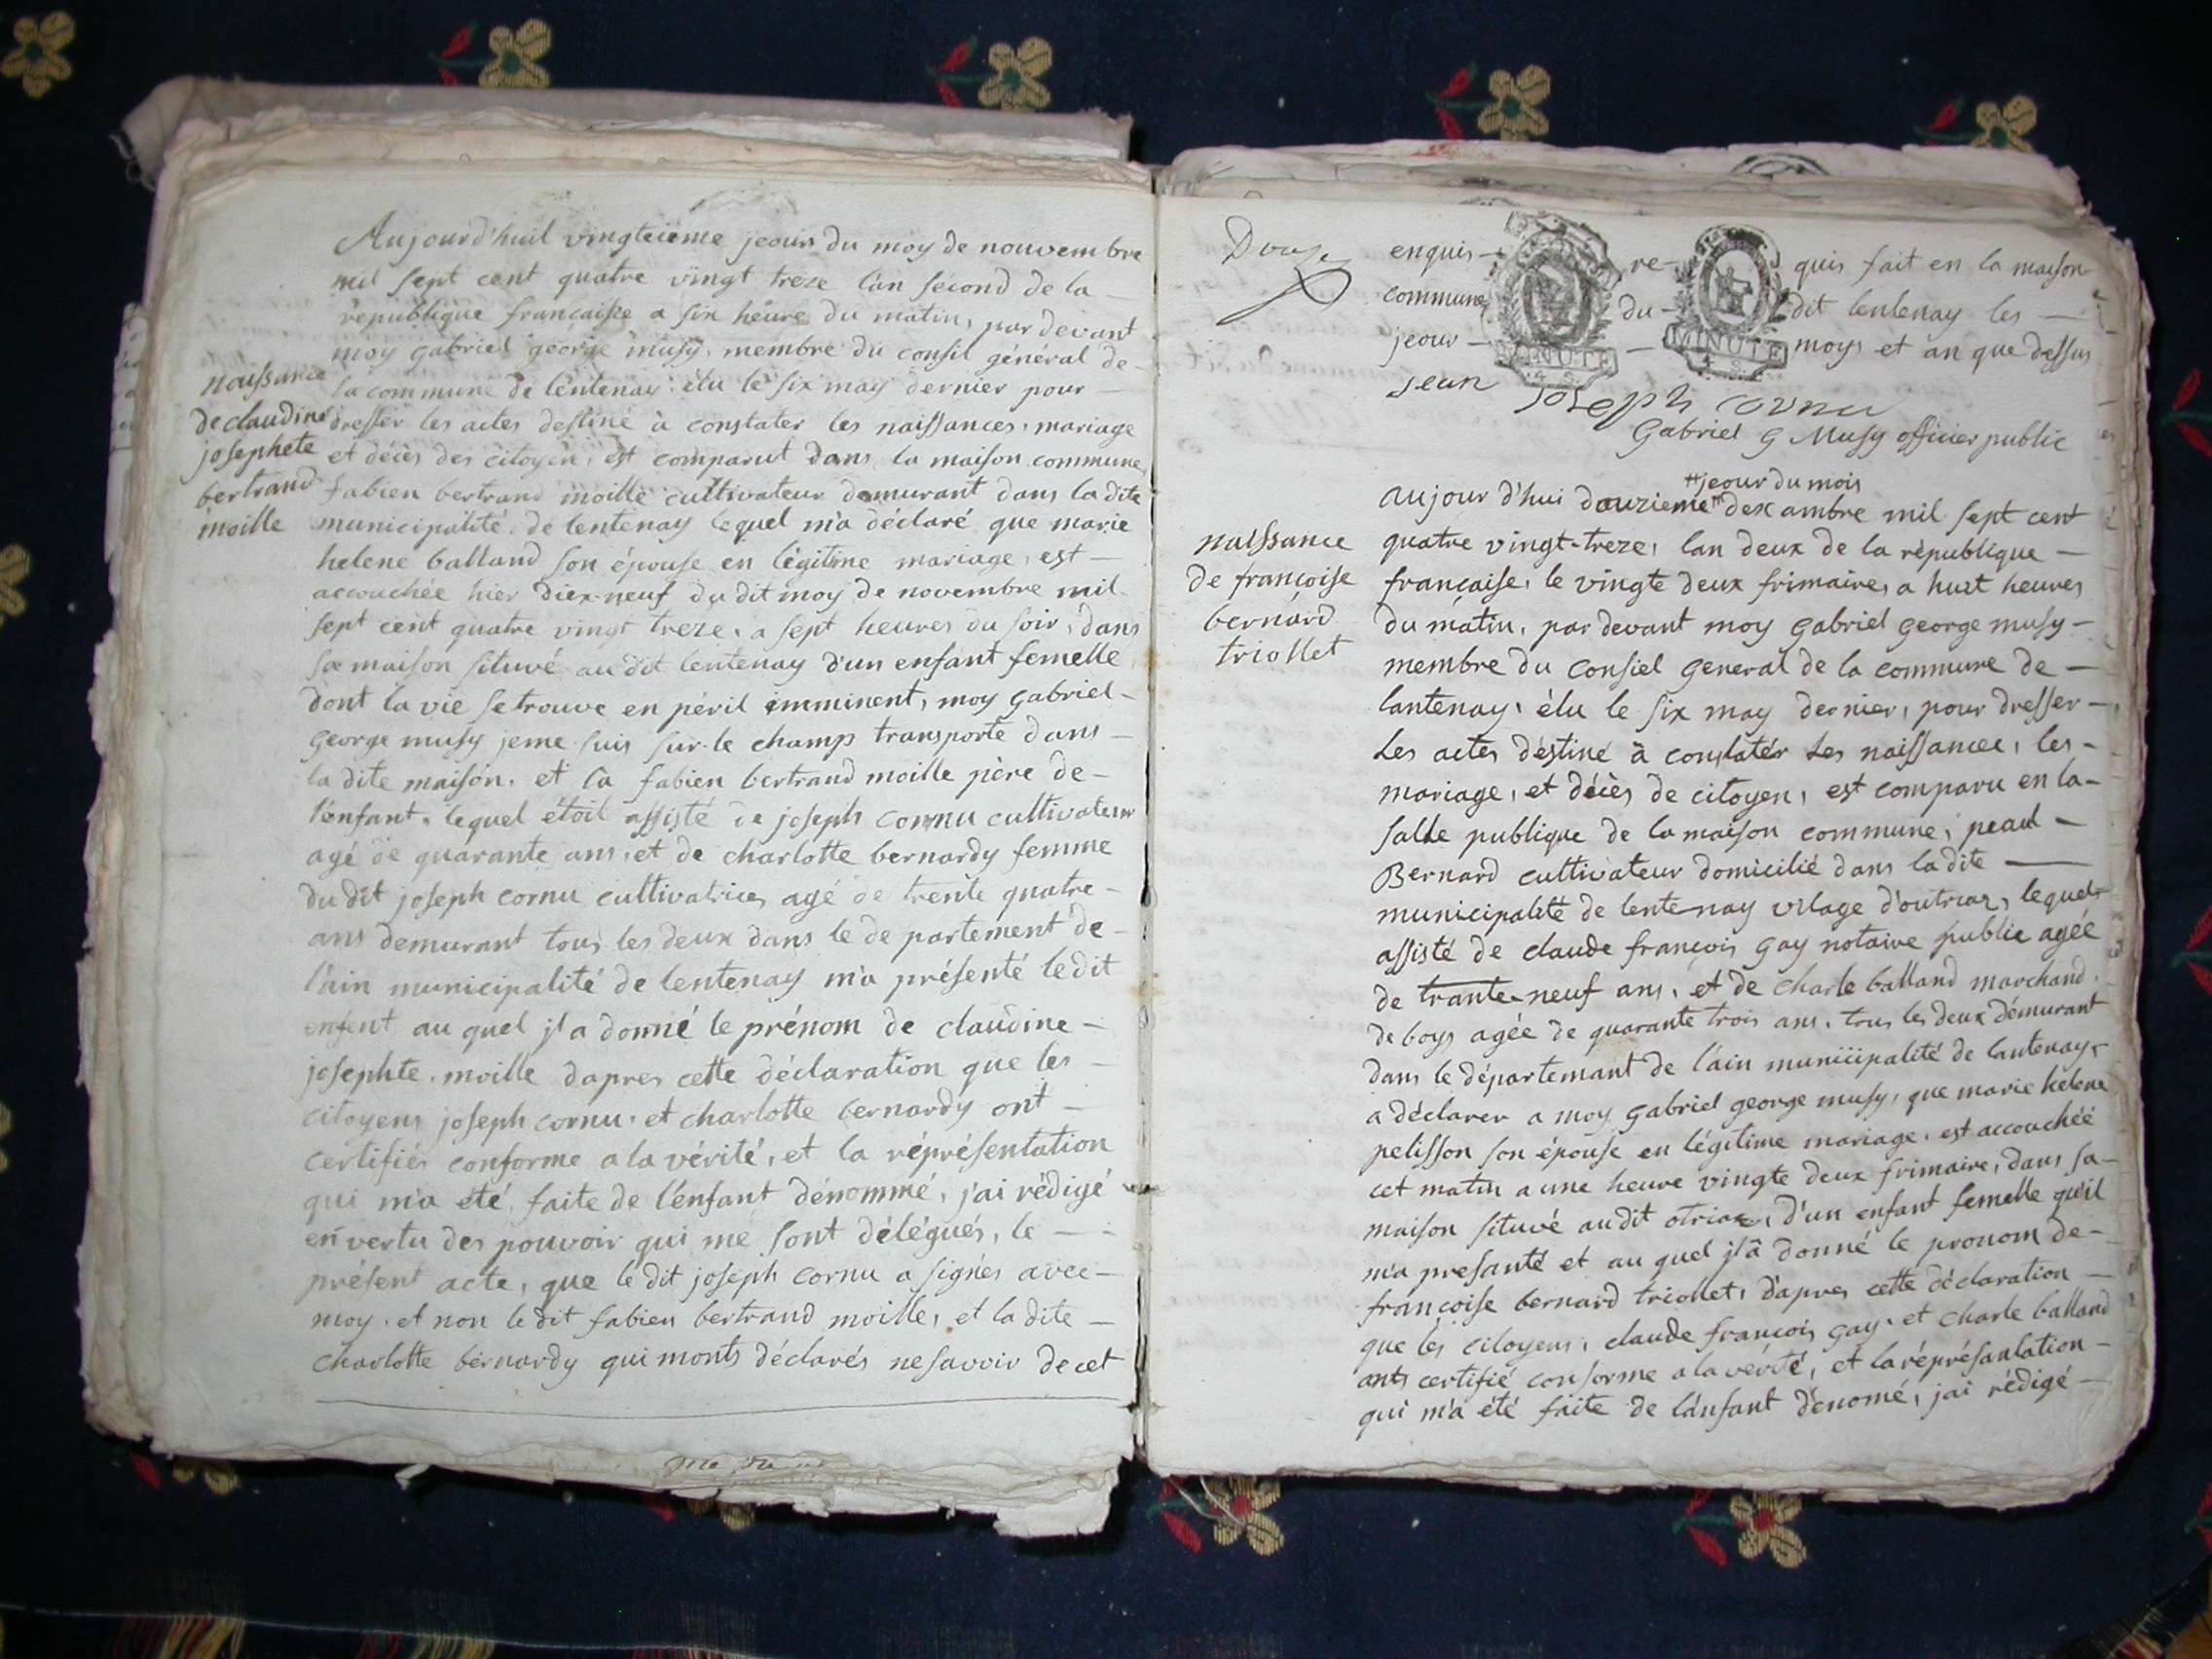 Aujourd'huil vingteieme jeour du moy de nouvembre
mil sept cent quatre vingt treze l'an second de la
republique française a six heure du matin, par devant
moy gabriel george musy membre du consil général de
naissance
de claudine
josephete
bertrand
moille
la commune de lentenay élu le six may dernier pour
dresser les actes destiné à constater les naissances, mariage
et décès des citoyen, est comparut dans la maison commune
fabien bertrand moille cultivateur demurant dans la dite
municipalité de lentenay lequel m'a déclaré que marie
helene balland son épouse en légitime mariage, est
accouchée hier diex-neuf du dit moy de novembre mil
sept cent quatre vingt treze, a sept heures du soir, dans
sa maison situvé au dit lentenay d'un enfant femelle
dont la vie se trouve en péril imminent, moy gabriel
george musy je me suis sur le champ transporté dans
la dite maison, et là fabien bertrand moille père de
l'énfant, lequel étoit assisté de joseph cornu cultivateur
agé de quarante ans, et de charlotte bernardy femme
du dit joseph cornu cultivatrice, agé de trente quatre
ans demurant tous les deux dans le de partement de
l'ain municipalité de lentenay m'a présenté le dit
enfent au quel jl a donné le prénom de claudine
josephte moille dapres cette déclaration que les
citoyens joseph cornu et charlotte bernardy ont
certifiés conforme a la vérité, et la réprésentation
qui m'a été faite de l'énfant dénommé, j'ai rédigé
en vertu des pouvoir qui me sont délégués, le
présent acte, que le dit joseph cornu a signés avec
moy, et non le dit fabien bertrand moille, et la dite
charlotte bérnardy qui monts déclarés ne savoir de cet
Douze
enquis re quis fait en la maison
commune du dit lentenay les
jeour moys et an que dessus
MINUTE MINUTE
jean joseph cornu
Gabriel G Musy officier public
jeour du mois
aujour d'hui douzieme dexambre mil sept cent
naissance
de françoise
bernard
triollet
quatre vingt-treze, lan deux de la république
française, le vingte deux frimaire, a huit heures
du matin, par devant moy gabriel george musy
membre du consiel general de la commune de
lantenay, élu le six may dernier, pour dresser
Les actes déstiné à constatér Les naissance, les
mariage, et décès de citoyen, est comparu en la
salle publique de la maison commune, peaul
Bernard cultivateur domicilié dans la dite
municipalité de lentenay vilage d'outriaz, lequel
assisté de claude françois gay notaire public agée
de trante-neuf ans, et de charle balland marchand
de boys agée de quarante trois ans, tous les deux démurant
dans le départemant de l'ain municipalité de lantenay
a déclarer a moy gabriel george musy, que marie helene
pelisson son épouse en légitime mariage, est accouchéé
cet matin a une heure vingte deux frimaire, dans sa
maison situvé au dit otriaz, d'un enfant femelle qu'il
m'a presanté et au quel jl a donné le pronom de
françoise bernard triollet, d'apres cette déclaration
que les citoyens, claude françois gay, et charle balland
ants certifié conforme a la vérité, et la réprésantation
qui m'a été faite de l'ánfant dénomé, j'ai rédigé